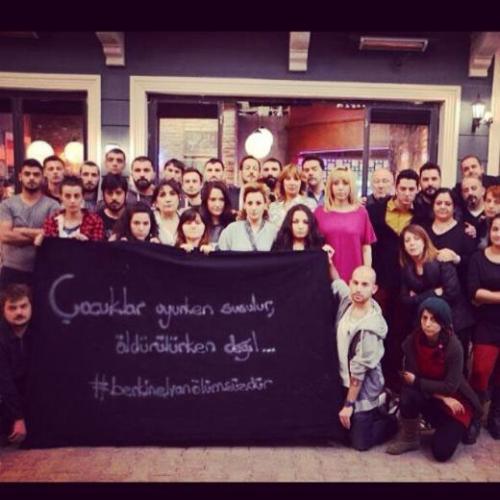 Çocuklar uyurken susulur,
öldürülürken değil...
#berkinelvanölümsüzdür